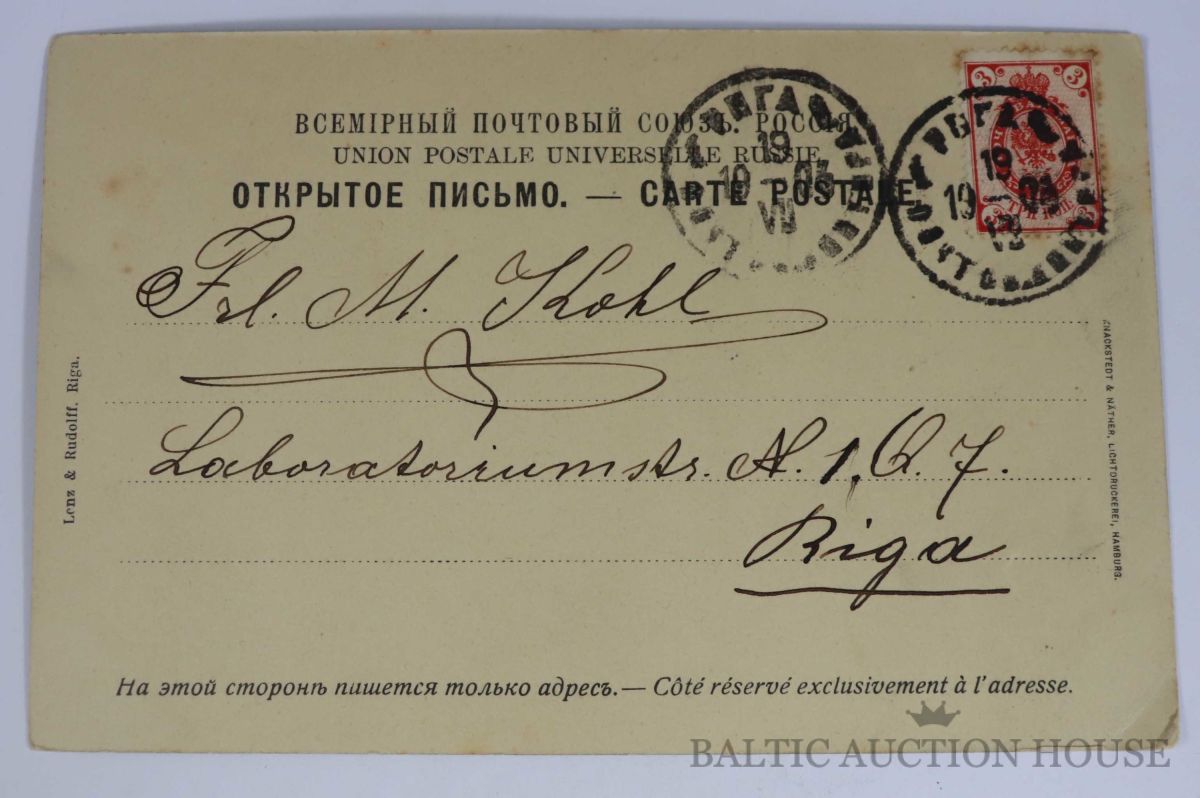 ВСЕМІРНЫЙ ПОЧТОВЫЙ СОЮЗЪ. РОССІЯ
UNION POSTALE UNIVERSELLE RUSSIE
ОТКРЫТОЕ ПИСЬМО. — CARTE POSTALE
РИГА
19
19 03
VII
3 3
РИГА
19
19 03
VII
Frl. M. Kohl
Laboratoriumstr. N. 1, Q. 7.
Riga
Lenz & Rudolff, Riga.
KNACKSTEDT & NÄTHER, LICHTDRUCKEREI, HAMBURG.
На этой сторонѣ пишется только адресъ. — Côté réservé exclusivement à l'adresse.
BALTIC AUCTION HOUSE